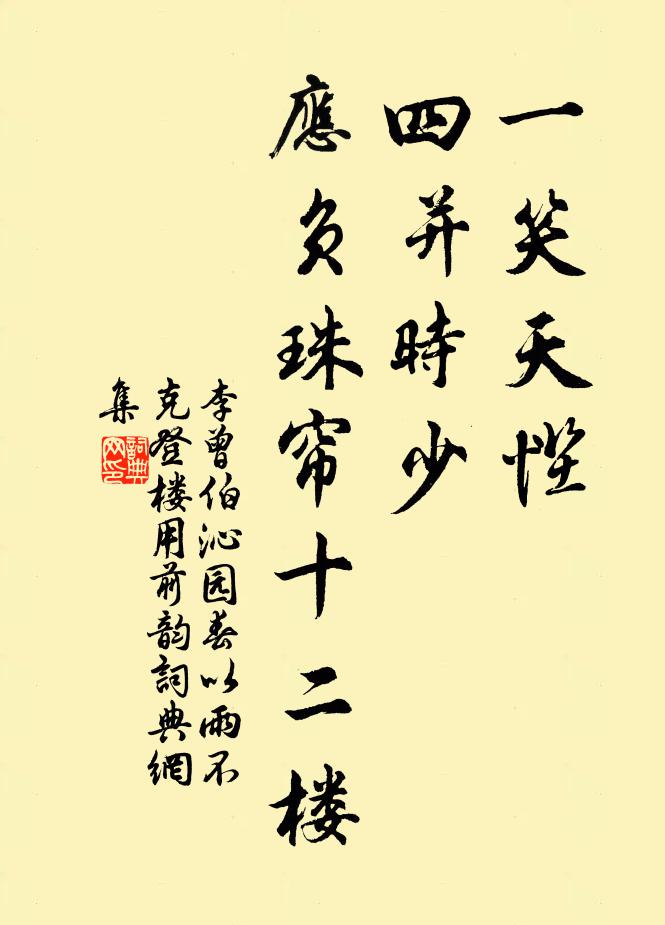 一笑天悭
四并時少
應负珠帘十二楼
李曾伯沁园春以雨不
克登楼用前韵詞典網
集
詞典
网印